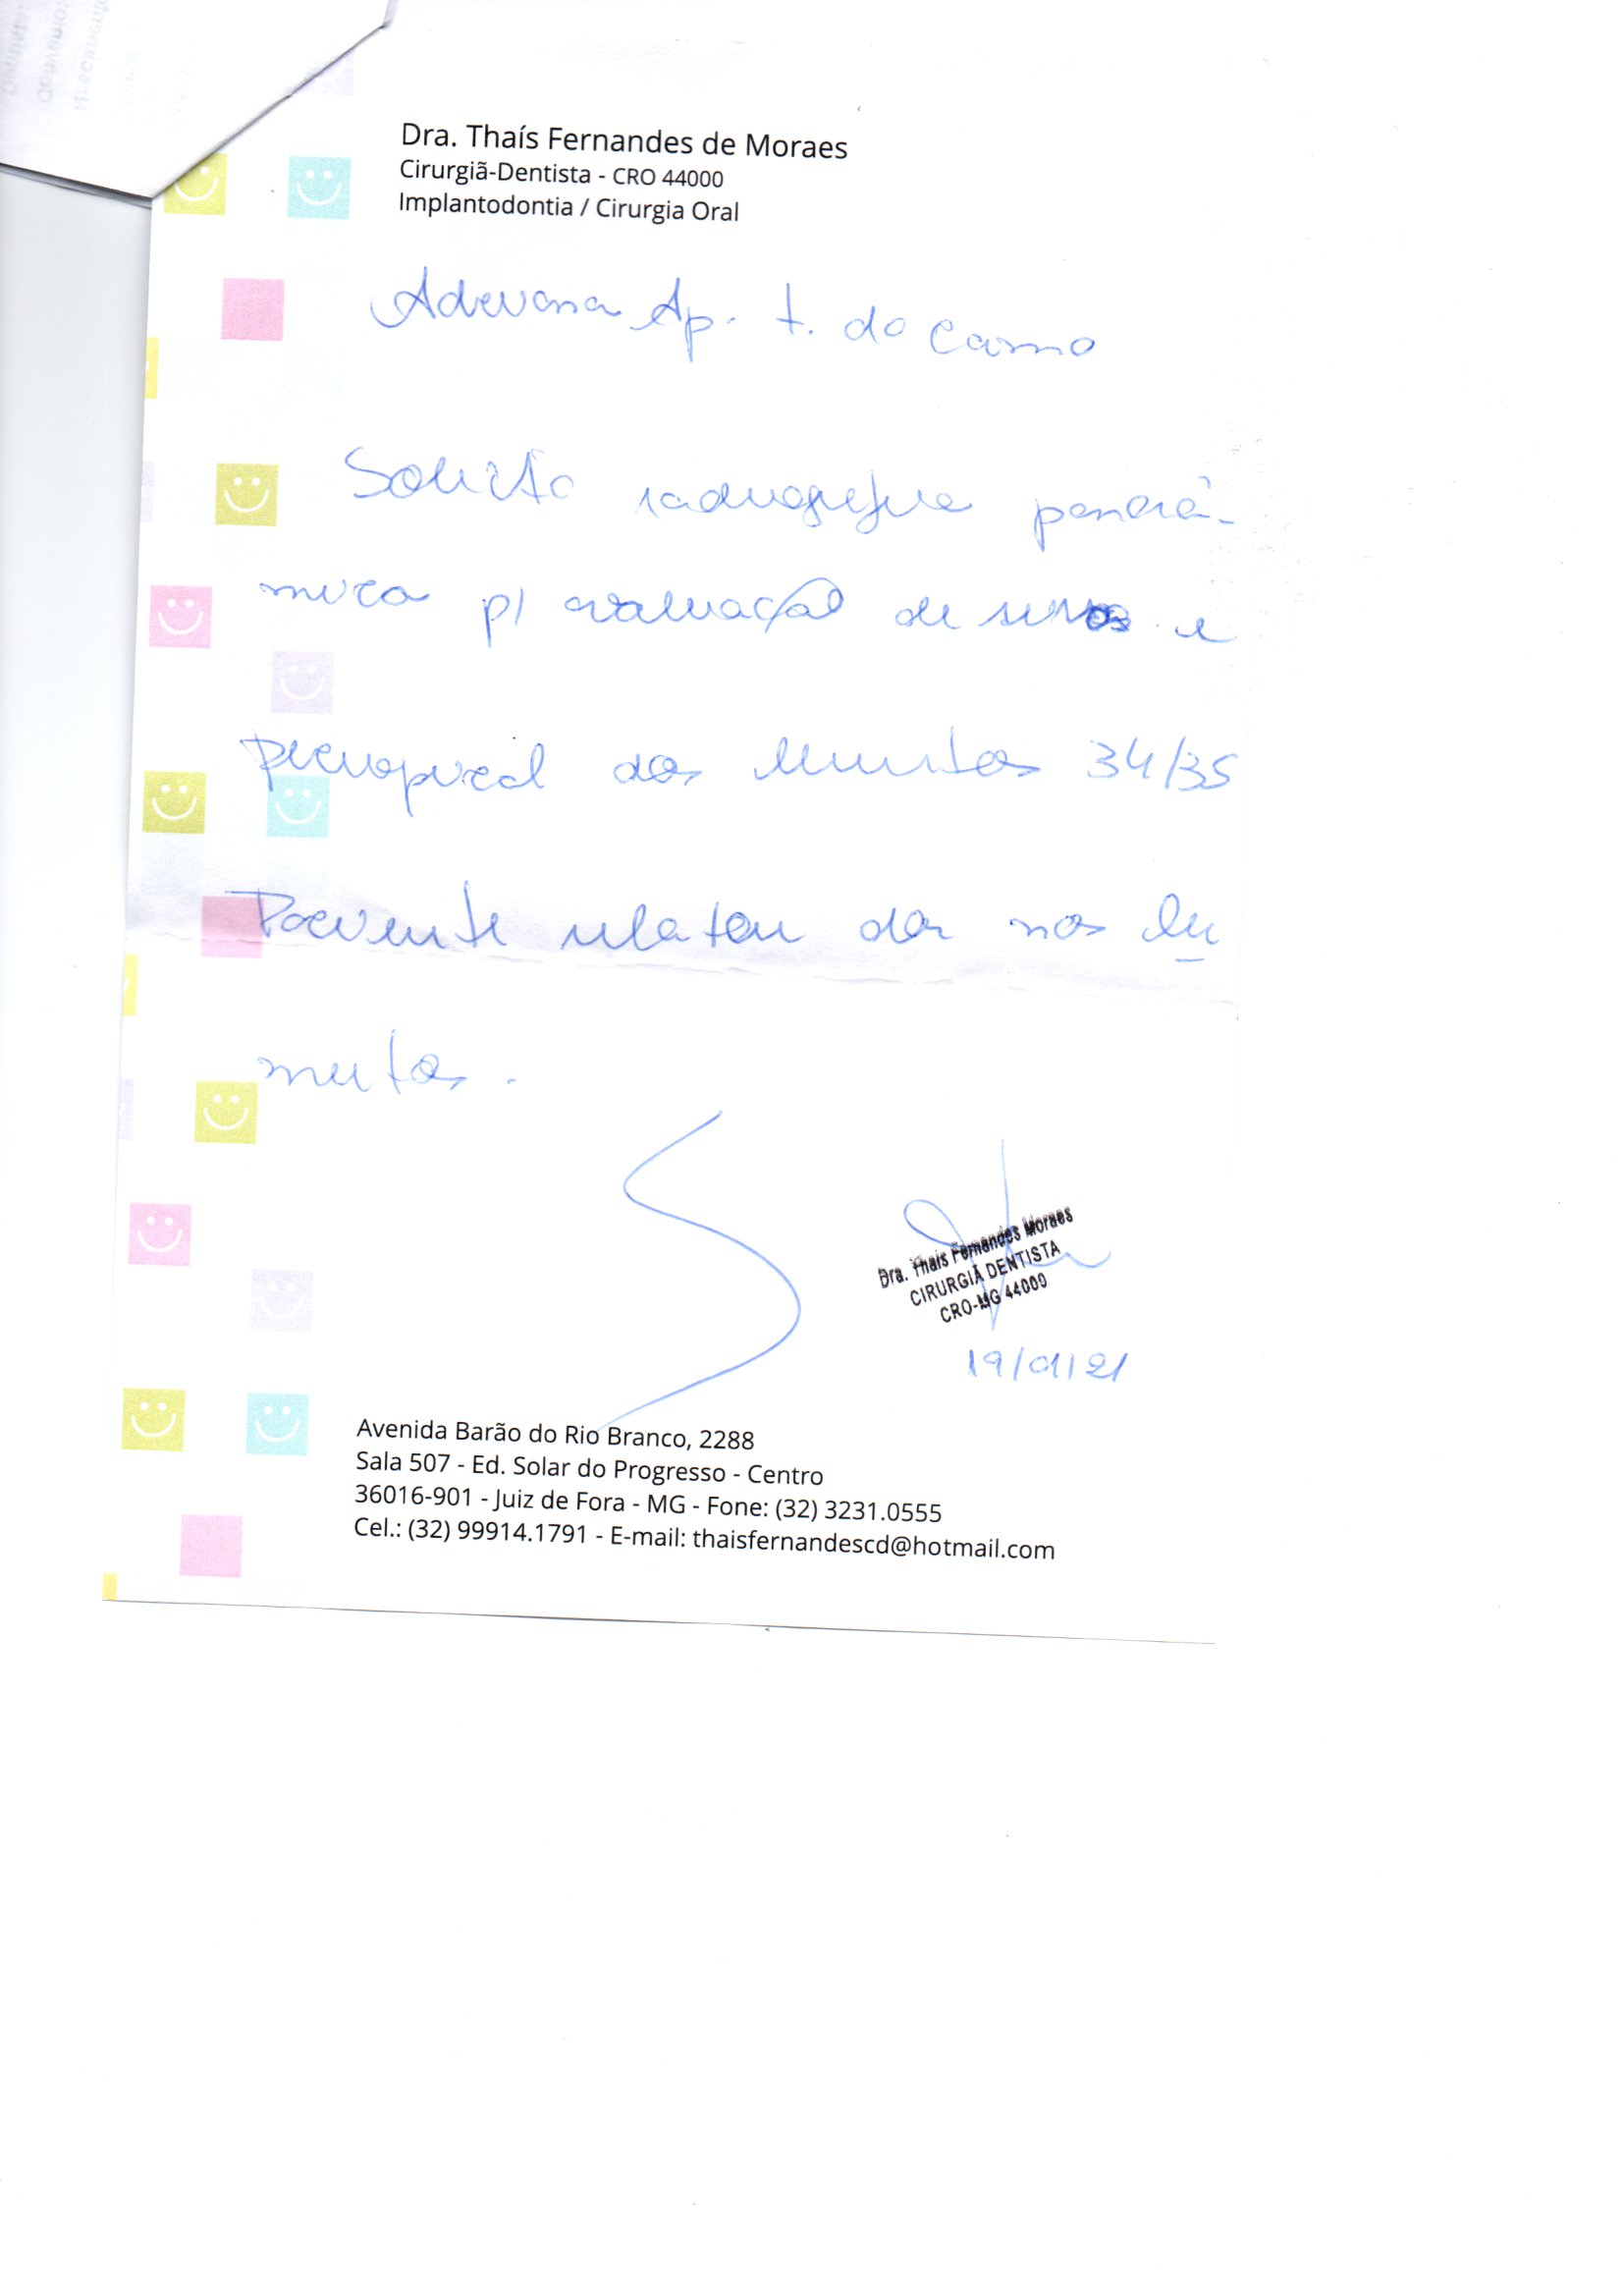 Dra. Thaís Fernandes de Moraes
Cirurgiã-Dentista - CRO 44000
Implantodontia / Cirurgia Oral
Ap. t. do Carmo
Solicito radiografia panorâ-
mica p/ avaliação de sisos e
periapical dos elementos 34/35
Paciente relatou dor nos ele
mentos.
Dra. Thais Fernandes Moraes
CIRURGIÃ DENTISTA
CRO-MG 44000
19/01/21
Avenida Barão do Rio Branco, 2288
Sala 507 - Ed. Solar do Progresso - Centro
36016-901 - Juiz de Fora - MG - Fone: (32) 3231.0555
Cel.: (32) 99914.1791 - E-mail: thaisfernandescd@hotmail.com